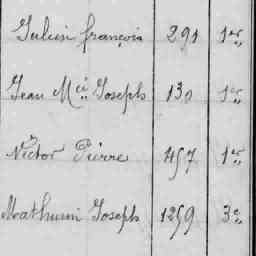 Julien françois 291 1er
Jean Mie Joseph 130 1er
Victor Pierre 457 1er
Mathurin Joseph 1259 3e